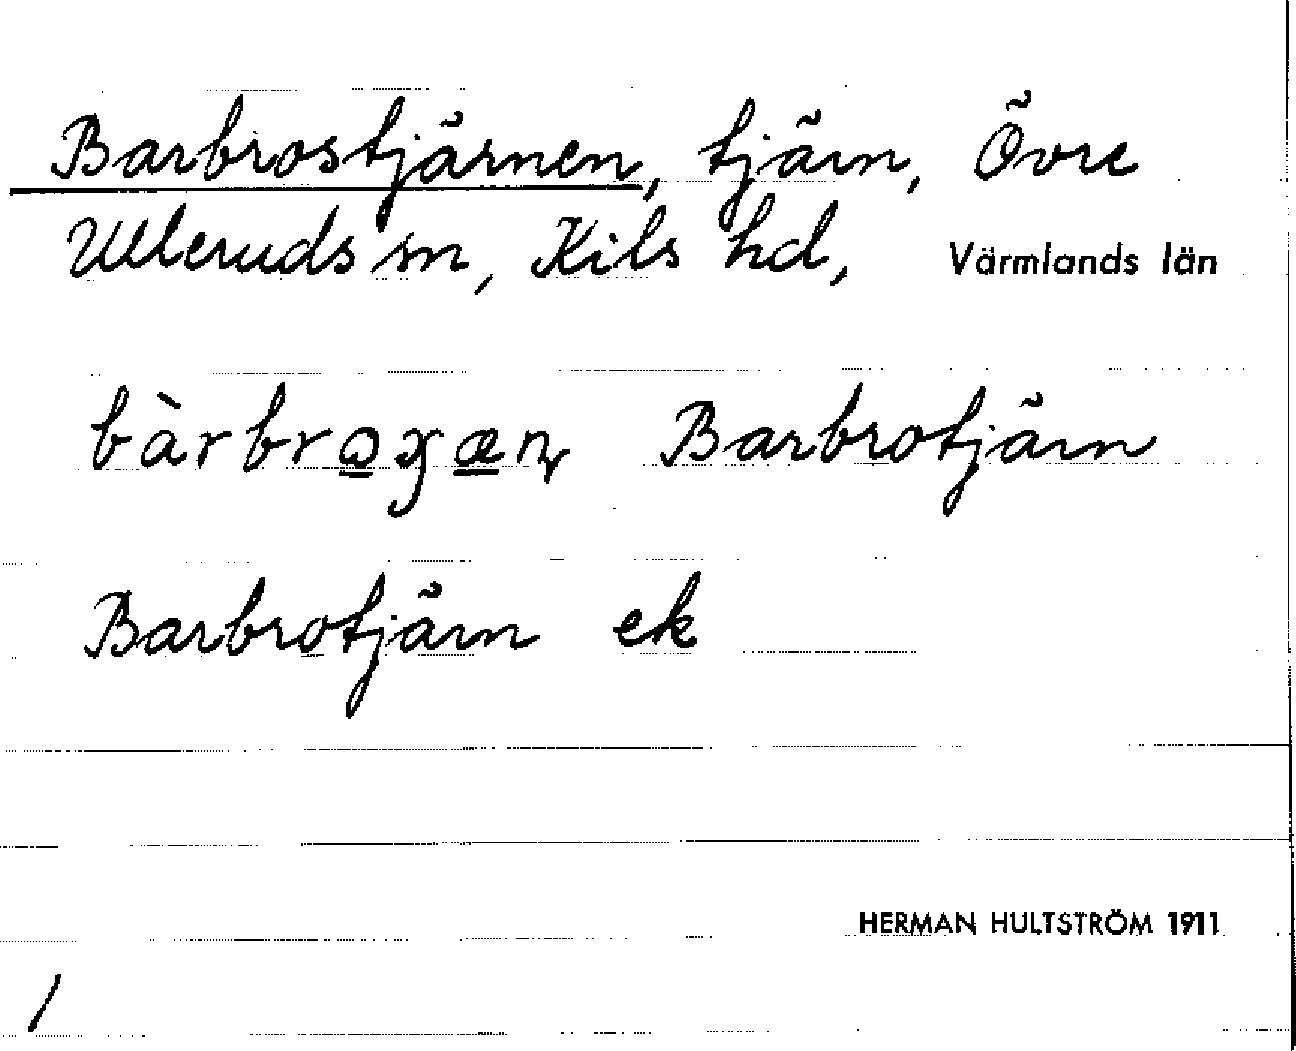 Barbrostjärnen, tjärn, Övre
Ulleruds sn, Kils hd, Värmlands län
bàrbrꝍɣæɳ Barbrotjärn
Barbrotjärn ek
HERMAN HULTSTRÖM 1911
/